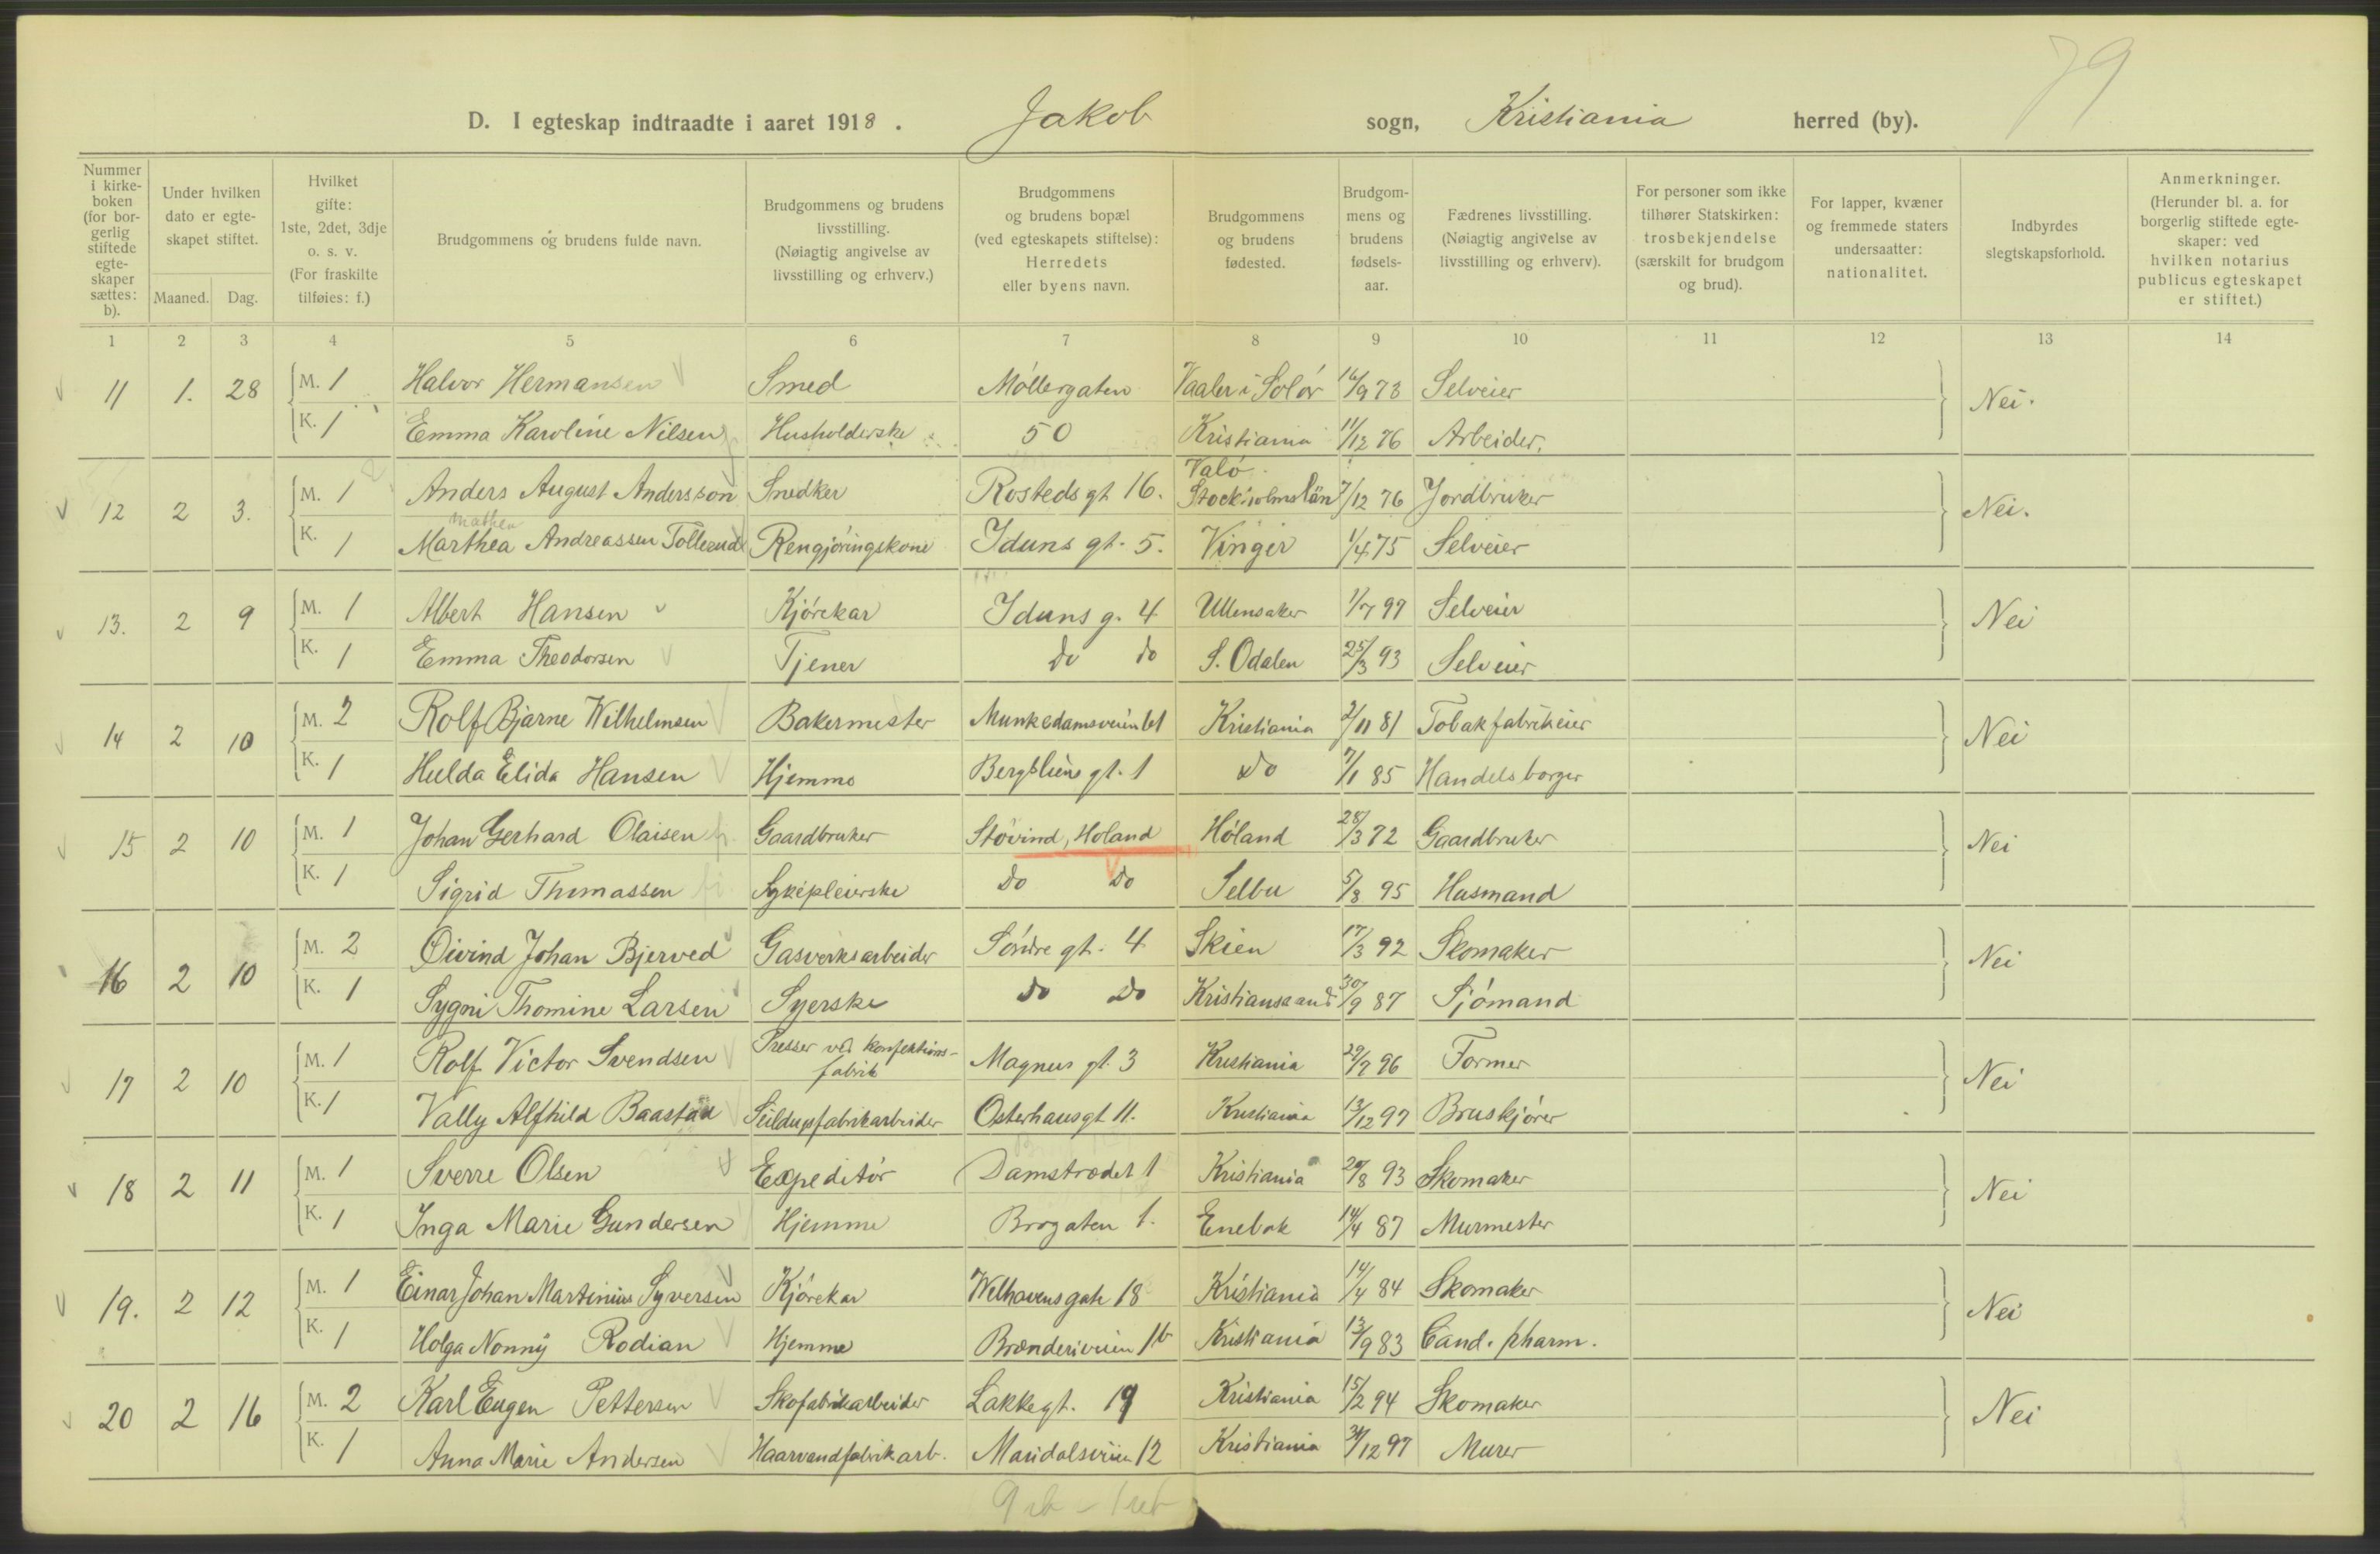 79
D. I egteskap indtraadte i aaret 1918. Jakob sogn, Kristiania herred (by).
Nummer i kirke-boken (for bor-gerlig stiftede egte-skaper sættes: b).
Under hvilken dato er egte-skapet stiftet.
Maaned. Dag.
Hvilket gifte: 1ste, 2det, 3dje o. s. v. (For fraskilte tilføies: f.)
Brudgommens og brudens fulde navn.
Brudgommens og brudens livsstilling. (Nøiagtig angivelse av livsstilling og erhverv.)
Brudgommens og brudens bopæl (ved egteskapets stiftelse): Herredets eller byens navn.
Brudgommens og brudens fødested.
Brudgom-mens og brudens fødsels-aar.
Fædrenes livsstilling. (Nøiagtig angivelse av livsstilling og erhverv).
For personer som ikke tilhører Statskirken: trosbekjendelse (særskilt for brudgom og brud).
For lapper, kvæner og fremmede staters undersaatter: nationalitet.
Indbyrdes slegtskapsforhold.
Anmerkninger. (Herunder bl. a. for borgerlig stiftede egte-skaper: ved hvilken notarius publicus egteskapet er stiftet.)
1 2 3 4 5 6 7 8 9 10 11 12 13 14
11 1. 28 M. 1 Halvor Hermansen Smed Møllergaten Vaaler i Solør 16/9 73 Selveier Nei.
K. 1 Emma Karoline Nilsen Husholderske 50 Kristiania 11/12 76 Arbeider.
12 2 3. M. 1 Anders August Andersson Snedker Rosteds gt 16. Valö Stockholms län 7/12 76 Jordbruker Nei.
Mathea
K. 1 Marthea Andreassen Tollerud Rengjøringskone Iduns gt. 5. Vinger 1/4 75 Selveier
13. 2 9 M. 1 Albert Hansen Kjørekar Iduns g. 4 Ullensaker 1/7 97 Selveier Nei
K. 1 Emma Theodorsen Tjener do do S. Odalen 25/3 93 Selveier
14 2 10 M. 2 Rolf Bjarne Wilhelmsen Bakermester Munkedamsveien 61 Kristiania 2/11 81 Tobakfabrikeier Nei
K. 1 Hulda Elida Hansen Hjemme Bergsliens gt. 1 do 7/1 85 Handelsborger
15 2 10 M. 1 Johan Gerhard Olaisen Gaardbruker Støvind, Høland Høland 28/3 72 Gaardbruker Nei
K. 1 Sigrid Thomassen Sykepleierske do do Selbu 5/8 95 Husmand
16 2 10 M. 2 Øivind Johan Bjerved Gasverksarbeider Søndre gt. 4 Skien 17/3 92 Skomaker Nei
K. 1 Sygni Thomine Larsen Syerske do do Kristiansand 30/9 87 Sjømand
17 2 10 M. 1 Rolf Victor Svendsen Presser ved konfektions-fabrik Magnus gt. 3 Kristiania 29/9 96 Former Nei
K. 1 Vally Alfhild Baastad Seildugsfabrikarbeider Osterhausgt 11. Kristiania 13/12 97 Bruskjører
18 2 11 M. 1 Sverre Olsen Expeditør Damstrædet 1 Kristiania 29/8 93 Skomaker Nei
K. 1 Inga Marie Gundersen Hjemme Brogaten 1. Enebak 14/4 87 Murmester
19. 2 12 M. 1 Einar Johan Martinius Syversen Kjørekar Welhavens gate 18 Kristiania 14/4 84 Skomaker Nei
K. 1 Holga Nonny Rodian Hjemme Brænderiveien 1b Kristiania 13/9 83 Cand. pharm.
20 2 16 M. 2 Karl Eugen Pettersen Skofabrikarbeider Lakkegt. 19 Kristiania 15/2 94 Skomaker Nei
K. 1 Anna Marie Andersen Haarvandfabrikarb. Maridalsveien 12 Kristiania 31/12 97 Murer